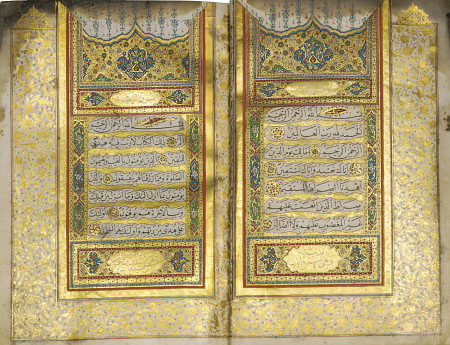 بسم الله الرحمن الرحيم
الحمد لله رب العالمين
الرحمن الرحيم مالك يوم الدين
اياك نعبد واياك نستعين
اهدنا الصراط المستقيم
صراط الذين انعمت عليهم غير
المغضوب عليهم ولا الضالين
بسم الله الرحمن الرحيم
الم ذلك الكتاب لا ريب فيه هدى
للمتقين الذين يؤمنون بالغيب ويقيمون
الصلوة ومما رزقناهم ينفقون والذين
يؤمنون بما انزل اليك وما انزل من
قبلك وبالاخرة هم يوقنون اولئك
على هدى من ربهم واولئك هم المفلحون